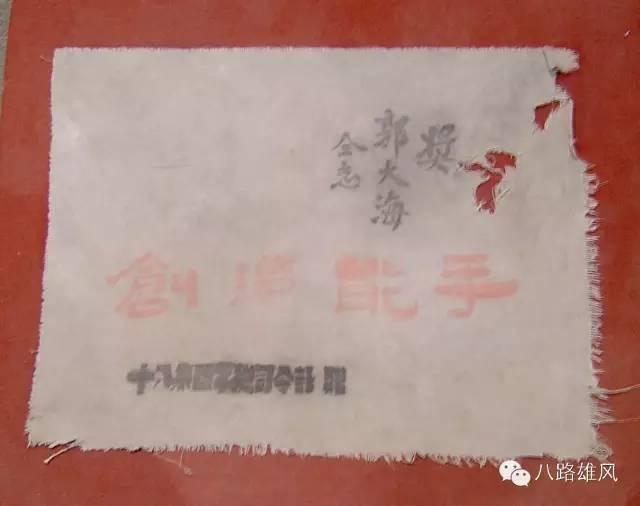 奬
郭大海
仝志
創造能手
十八集團軍總司令部
八路雄风